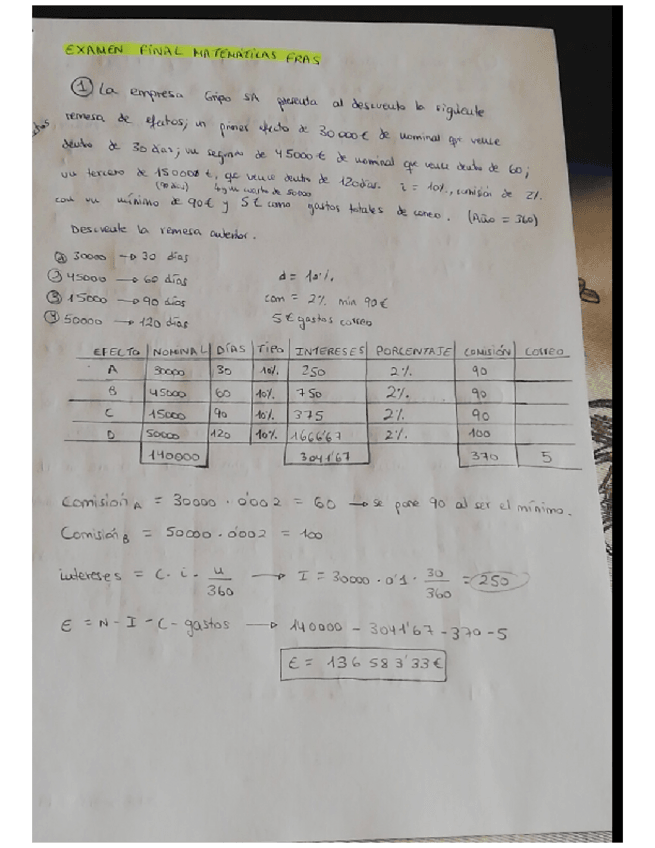 EXAMEN FINAL MATEMÁTICAS FRAS
① La empresa Gripo SA presenta al descuento la siguiente
remesa de efectos; un primer efecto de 30000€ de nominal que vence
dentro de 30 días; un segundo de 45000€ de nominal que vence dentro de 60;
un tercero de 15000€, que vence dentro de 120 días. i = 10%, comisión de 2%
(90 días) y un cuarto de 50000
con un mínimo de 90€ y 5€ como gastos totales de correo. (Año = 360)
Descuente la remesa anterior.
30000 → 30 días
② 45000 → 60 días d = 10%
③ 15000 → 90 días com = 2% min 90€
④ 50000 → 120 días 5€ gastos correo
EFECTO NOMINAL DÍAS Tipo INTERESES PORCENTAJE COMISIÓN Correo
A 30000 30 10% 250 2% 90
B 45000 60 10% 750 2% 90
C 15000 90 10% 375 2% 90
D 50000 120 10% 1666'67 2% 100
140000 3041'67 370 5
Comisión A = 30000 · 0'002 = 60 → se pone 90 al ser el mínimo.
Comisión B = 50000 · 0'002 = 100
intereses = C · i · n/360 → I = 30000 · 0'1 · 30/360 = 250
E = N - I - C - gastos → 140000 - 3041'67 - 370 - 5
E = 136583'33€